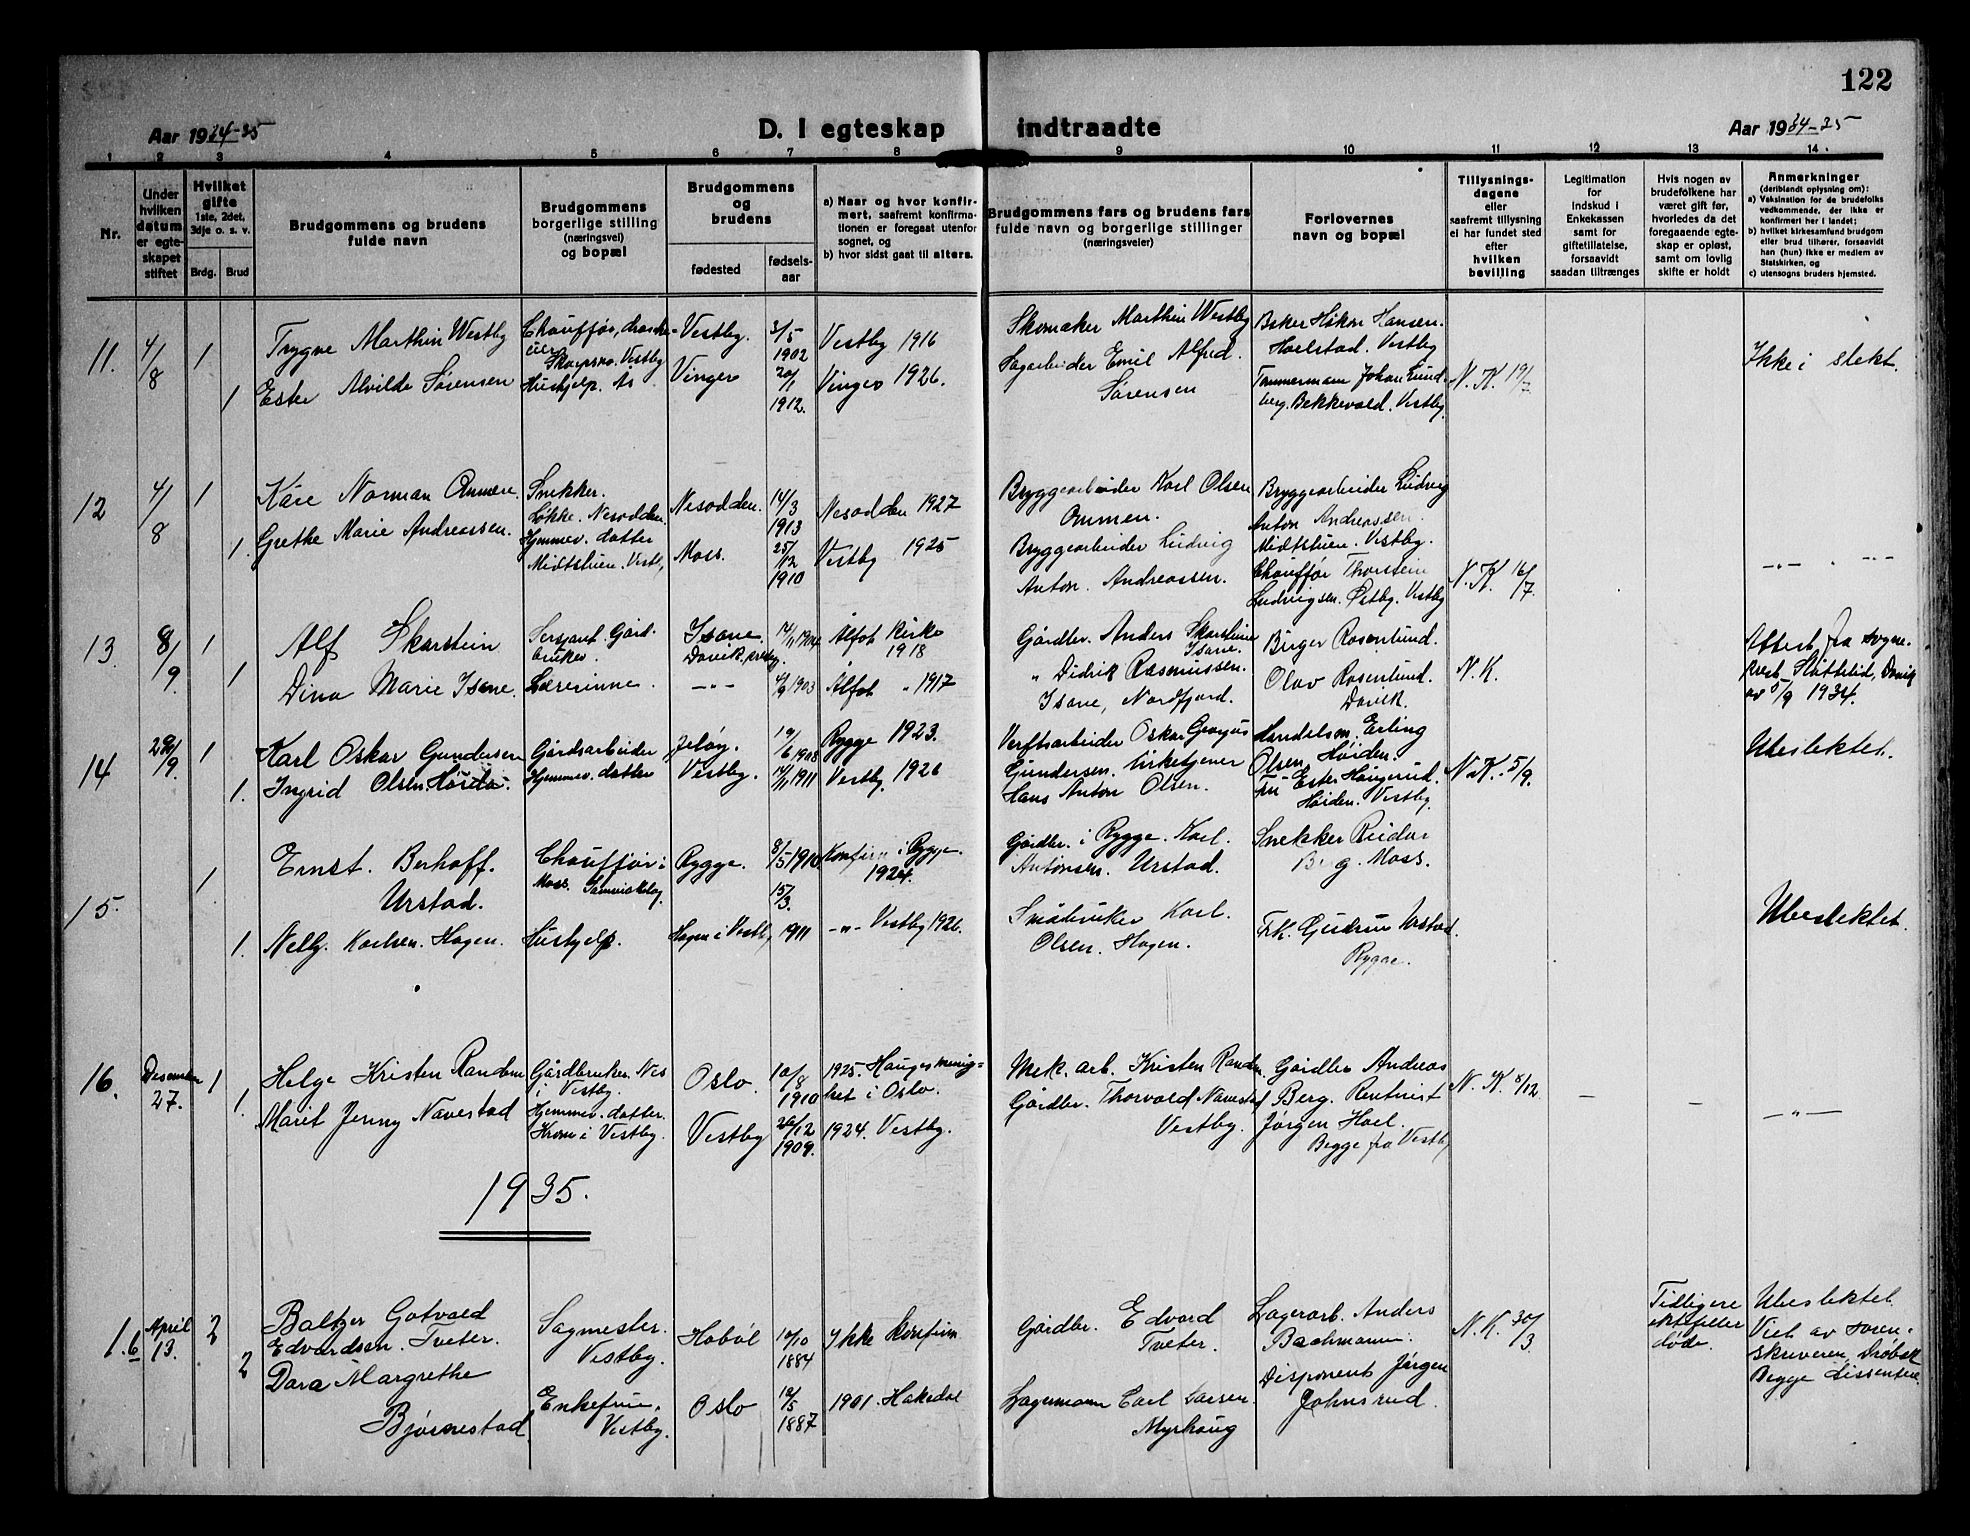 122
Aar 1934-35
D. I egteskap indtraadte
Aar 1934-35
1 2 3 4 5 6 7 8 9 10 11 12 13 14
Nr.
Under hvilken datum er egteskapet stiftet
Hvilket gifte
1ste, 2det, 3dje o. s. v.
Brdg. Brud
Brudgommens og brudens fulde navn
Brudgommens borgerlige stilling (næringsvei) og bopæl
Brudgommens og brudens
fødested
fødselsaar
a) Naar og hvor konfirmert, saafremt konfirmationen er foregaat utenfor sognet, og
b) hvor sidst gaat til alters.
Brudgommens fars og brudens fars fulde navn og borgerlige stillinger (næringsveier)
Forlovernes navn og bopæl
Tillysningsdagene eller saafremt tillysning ei har fundet sted efter hvilken bevilling
Legitimation for indskud i Enkekassen samt for giftetillatelse, forsaavidt saadan tiltrænges
Hvis nogen av brudefolkene har været gift før, hvorledes da det foregaaende egteskap er opløst, samt om lovlig skifte er holdt
Anmerkninger
(deriblandt oplysning om):
a) Vaksination for de brudefolks vedkommende, der ikke er konfirmert her i landet;
b) hvilket kirkesamfund brudgom eller brud tilhører, forsaavidt han (hun) ikke er medlem av Statskirken, og
c) utensogns bruders hjemsted.
11. 4/8 1 Trygve Marthin Westby Chauffør, Vestby Vestby. 3/5 1902 Vestby 1916 Skomaker Marthin Westby Baker Håkon Hansen. Hoelstad. Vestby Ikke i slekt.
1 Ester Alvilde Sørensen Hushjelp. Ås Vinger 20/1 1912. Vinger 1926. Sagarbeider Emil Alfred. Sørensen Tømmermann Johan Lundberg. Bekkevold. Vestby N. K. 19/7
12 4/8 1 Kåre Norman Ommen Snekker. Løkke. Nesodden. Nesodden. 14/3 1913 Nesodden 1927 Bryggearbeider Karl Olsen Ommen. Bryggearbeider Ludvig Anton Andreassen. Midtstuen. Vestby.
1. Grethe Marie Andreassen. Hjemmev. datter Midtstuen. Vestby Moss. 25/12 1910 Vestby 1925 Bryggearbeider Ludvig Anton Andreassen. Chauffør Thorstein Ludvigsen. Østby. Vestby N. K. 16/7. -"-
13. 8/9. 1 Alf Skarstein Sersjant. Gårdbruker. Isane. Davik, 1904 Ålfot Kirke 1918 Gårdbr. Anders Skarstein Isane. Birger Rosenlund. Attest fra sogneprest Davik av 5/9 1934.
1 Dina Marie Isane. Lærerinne. -"- 4/9 1903 Ålfot " 1917 " Didrik Rasmussen. Isane, Nordfjord. Olav Rosenlund. Davik. N. K.
14 29/9. 1 Karl Oskar Gundersen Gårdsarbeider Jeløy. 19/6 1908 Rygge 1923. Verftsarbeider Oskar Gundersen. Handelsm. Erling Olsen, Høiden. Ubeslektet.
1. Ingrid Olsen Høiden. Hjemmev. datter Vestby. 14/11 1911 Vestby. 1926 Kirketjener Hans Anton Olsen. Fru Ester Haugerud. Høiden. Vestby. N. K. 5/9.
15. 1 Ernst. Berhoff. Urstad. Chauffør i Moss. Rygge. 8/5 1910 Konfirm i Rygge. 1924. Gårdbr. i Rygge. Karl. Antonsen. Urstad. Snekker Reidar Berg. Moss.
1. Nelly. Karlsen. Hagen. Hushjelp. Hagen i Vestby 15/3. 1911 -"- Vestby 1926. Småbruker Karl. Olsen. Hagen. Frk. Gudrun Urstad. Rygge. Ubeslektet.
16. Desember 27. 1 Helge Kristen Randem Gårdbruker. Nes i Vestby. Oslo. 10/8 1910 1925. Hauges menighet i Oslo. Mek. arb. Kristen Randem Gårdbr Andreas Berg. N. K. 8/12. – –
1. Marit Jenny Navestad Hjemmev. datter. Krom i Vestby. Vestby 26/12 1909. 1924. Vestby. Gårdbr. Thorvald Navestad Vestby. Rentnist Jørgen Hoel. Begge fra Vestby –"–
1935.
1. 6 April 13. 2 Baltzer Gotvald Edvardsen. Tveter. Sagmester. Vestby. Hobøl 10/10 1884 Ikke konfirm Gårdbr. Edvard Tveter. Lagerarb. Anders Bachmann. N. K. 30/3. Tidligere ektefeller døde. Ubeslektet. Viet av sorenskriveren, Drøbak Begge dissentere.
2 Dara Margrethe Bjørnestad Enkefrue. Vestby. Oslo 12/5 1887 1901. Hakedal Lagermann Carl Larsen. Myrhaug Disponent Jørgen Johnsrud.